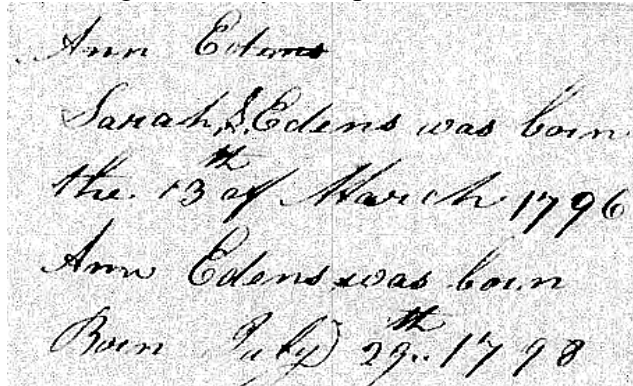 Ann Edens
Sarah S. Edens was born
the 13th of March 1796
Ann Edens was born
Born July 29th 1798